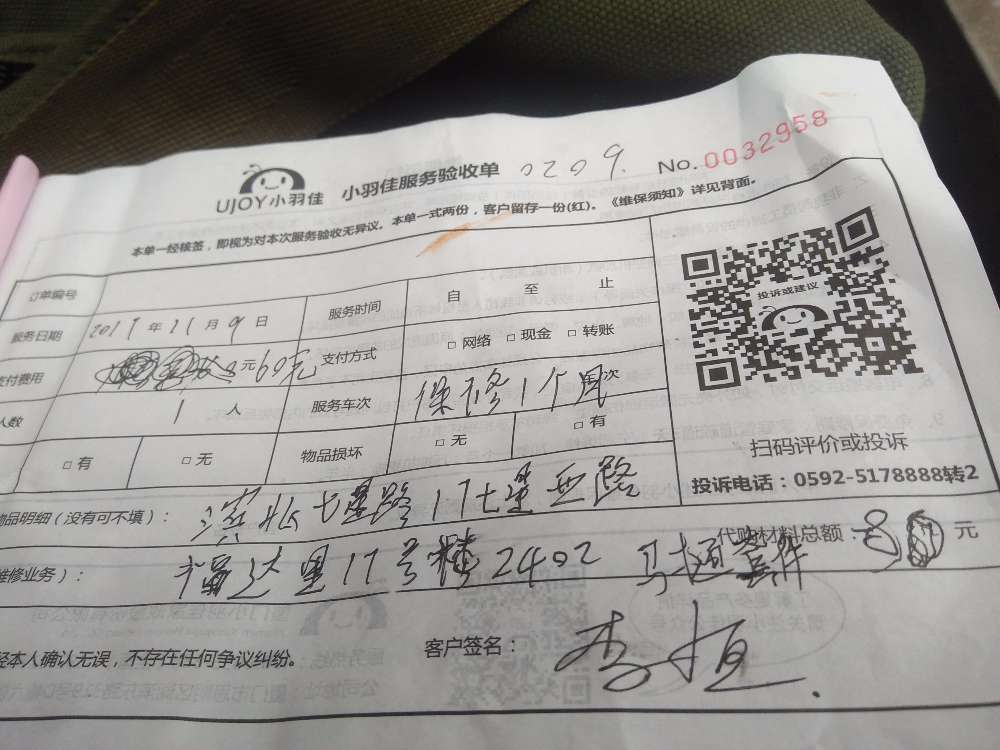 UJOY小羽佳 小羽佳服务验收单 0209. No.0032958
本单一经核签，即视为对本次服务验收无异议。本单一式两份，客户留存一份(红)。《维保须知》详见背面。
订单编号 服务时间 自 至 止
服务日期 2019年11月9日 支付方式 □网络 □现金 □转账
支付费用 元60元
人数 1人 服务车次 保修1个月 车次
□有 □无 物品损坏 □无 □有
投诉或建议
扫码评价或投诉
投诉电话：0592-5178888转2
物品明细（没有可不填）： 滨北七星路17七星西路
代购材料总额： 元
维修业务）： 福达里17号楼2402 马桶套件
经本人确认无误，不存在任何争议纠纷。 客户签名： 李恒